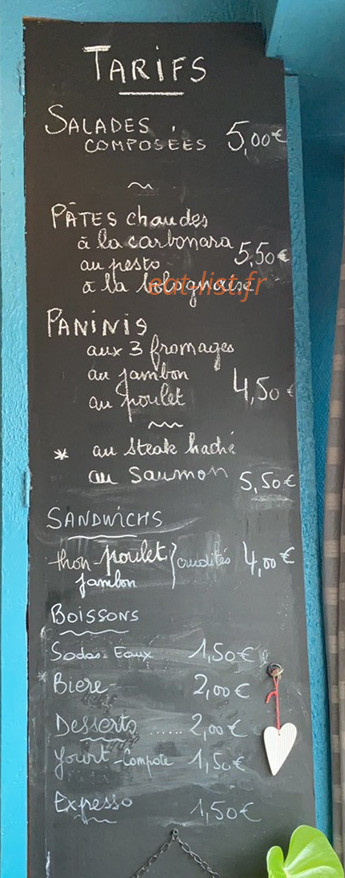 TARIFS
SALADES
COMPOSÉES 5,00€
PÂTES chaudes
à la carbonara
au pesto 5,50€
à la bolognaise
eat-list.fr
PANINIS
aux 3 fromages
au jambon
au poulet 4,50€
* au steak haché
au saumon 5,50€
SANDWICHS
thon-poulet } crudités 4,00€
jambon
BOISSONS
Sodas. Eaux 1,50€
Biere 2,00€
Desserts ...... 2,00€
Yourt-Compote 1,50€
Expresso 1,50€